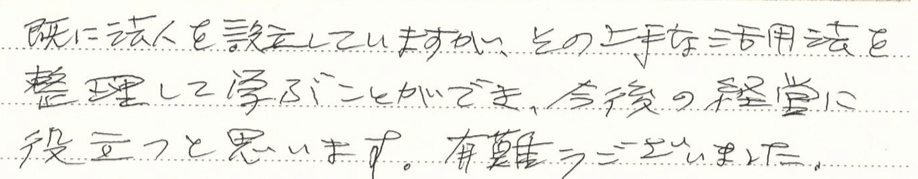 既に法人を設立していますが、その上手な活用法を
整理して学ぶことができ、今後の経営に
役立つと思います。有難うございました。